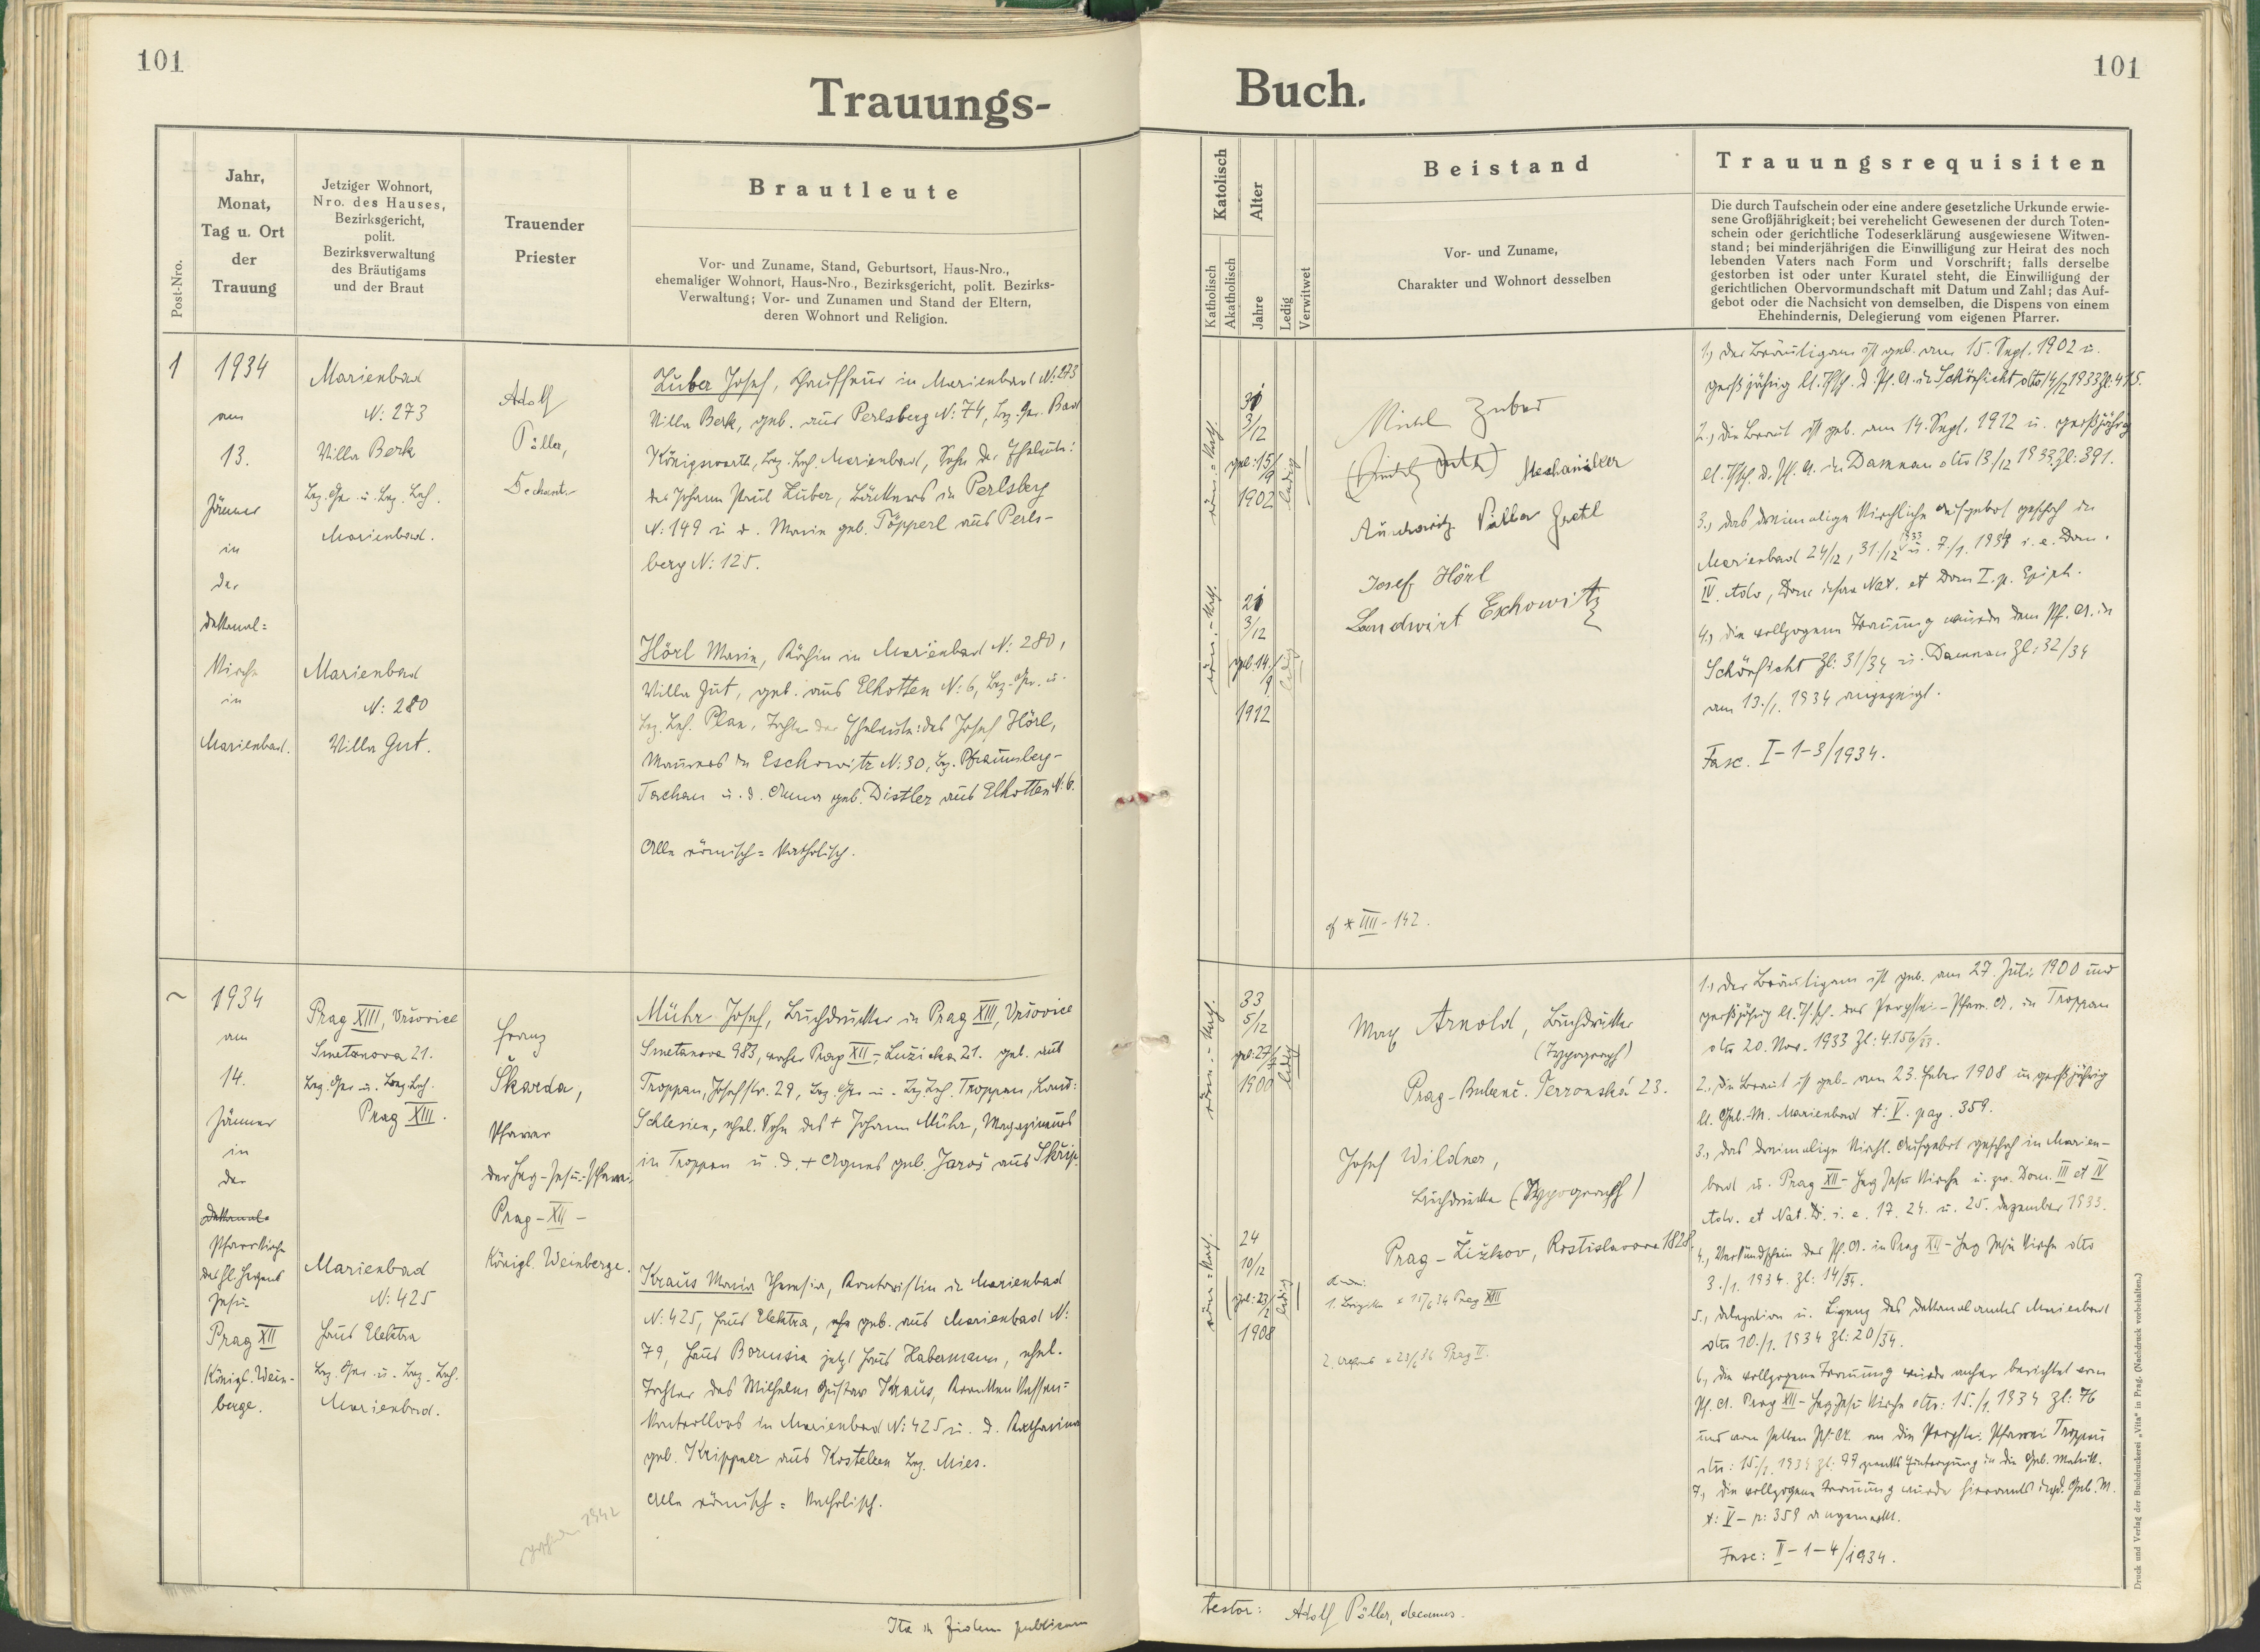 101
Trauungs-
Post-Nro.
Jahr,
Monat,
Tag u. Ort
der
Trauung
Jetziger Wohnort,
Nro. des Hauses,
Bezirksgericht,
polit.
Bezirksverwaltung
des Bräutigams
und der Braut
Trauender
Priester
Brautleute
Vor- und Zuname, Stand, Geburtsort, Haus-Nro.,
ehemaliger Wohnort, Haus-Nro., Bezirksgericht, polit. Bezirks-
Verwaltung; Vor- und Zunamen und Stand der Eltern,
deren Wohnort und Religion.
1
1934
am
13.
Jänner
in
der
Dekanal=
Kirche
in
Marienbad.
Marienbad
N: 273
Villa Berk
Bez. Ger. u. Bez. Beh.
Marienbad.
Marienbad
N: 280
Villa Gut.
Adolf
Pöller,
Dechant
Zuber Josef, Chauffeur in Marienbad N: 273
Villa Berk, geb. aus Perlsberg N: 74, Bez. Ger. Bad
Königswarth, Bez. Beh. Marienbad, Sohn der Eheleute:
des Johann Paul Zuber, Bäckers in Perlsberg
N: 149 u. d. Marie geb. Töpperl aus Perls-
berg N: 125.
Hörl Marie, Köchin in Marienbad N: 280,
Villa Gut, geb. aus Elhotten N: 6, Bez. Ger. u.
Bez. Beh. Plan, Tochter der Eheleute: des Josef Hörl,
Maurers in Eschowitz N: 30, Bez. Pfraumberg-
Tachau u. d. Anna geb. Distler aus Elhotten N: 6.
Alle römisch=katholisch.
1934
am
14.
Jänner
in
der
Dekanal-
Pfarrkirche
des hl. Herzens
Jesu
Prag XII
Königl. Wein-
berge.
Prag XIII, Vršovice
Smetanova 21.
Bez. Ger. u. Bez. Beh.
Prag XIII.
Marienbad
N: 425
Haus Elektra
Bez. Ger. u. Bez. Beh.
Marienbad.
Franz
Škarda,
Pfarrer
der Herz-Jesu-Pfarrei,
Prag-XII-
Königl. Weinberge.
Mühr Josef, Buchdrucker in Prag XIII, Vršovice
Smetanova 983, vorher Prag XII, Lužicka 21. geb. aus
Troppau, Josefstr. 29, Bez. Ger. u. Bez. Beh. Troppau, Land:
Schlesien, ehel. Sohn des + Johann Mühr, Magazineurs
in Troppau u. d. + Agnes geb. Jaroš aus Skrip.
Kraus Maria Theresia, Kontoristin in Marienbad
N: 425, Haus Elektra, geb. aus Marienbad N:
79, Haus Borussia jetzt Haus Habermann, ehel.
Tochter des Wilhelm Gustav Kraus, Krankenkassen=
kontrollors in Marienbad N: 425 u. d. Katharina
geb. Krippner aus Kostelzen Bez. Mies.
Alle römisch=katholisch.
1942
Ita in fidem publicam
101
Buch.
Katolisch
Katholisch
Akatholisch
Alter
Jahre
Ledig
Verwitwet
Beistand
Vor- und Zuname,
Charakter und Wohnort desselben
Trauungsrequisiten
Die durch Taufschein oder eine andere gesetzliche Urkunde erwie-
sene Großjährigkeit; bei verehelicht Gewesenen der durch Toten-
schein oder gerichtliche Todeserklärung ausgewiesene Witwen-
stand; bei minderjährigen die Einwilligung zur Heirat des noch
lebenden Vaters nach Form und Vorschrift; falls derselbe
gestorben ist oder unter Kuratel steht, die Einwilligung der
gerichtlichen Obervormundschaft mit Datum und Zahl; das Auf-
gebot oder die Nachsicht von demselben, die Dispens von einem
Ehehindernis, Delegierung vom eigenen Pfarrer.
röm.=kath.
31
3/12
geb: 15/9
1902
ledig
röm.-kath.
21
3/12
geb. 14./9
1912
ledig
Zuber
Mechaniker
Auschowitz
Josef Hörl
Landwirt Eschowitz
IIII-142.
1., Der Bräutigam ist geb. am 15. Sept. 1902 u.
großjährig lt. Tfsch. d. Pf. A. in Schönficht dto 14/12 1933 Zl: 415.
2., Die Braut ist geb. am 14. Sept. 1912 u. großjährig
lt. Tfsch. d. Pf. A. in Damnau dto 13/12 1933 Zl: 391.
3., Das dreimalige kirchliche Aufgebot geschah in
Marienbad 24/12, 31./12 33 u. 7./1. 1934 i. e. Dom.
IV. Adv, Dom infra Nat. et Dom I. p. Epiph.
4., Die vollzogene Trauung wurde dem Pf. A. in
Schönficht Zl: 31/34 u. Damnau Zl: 32/34
am 13./1. 1934 angezeigt.
Fasc. I-1-3/1934.
röm.-kath.
33
5/12
geb: 27/7
1900
ledig
röm=kath.
24
10/12
geb: 23/2
1908
ledig
Max Arnold, Buchdrucker
(Typograph)
Prag-Bubenč. Verronská 23.
Josef Wildner,
Buchdrucker (Typograph)
Prag-Žižkov, Rostislavova 1828.
1. Brigitte * 15/6 34 Prag XIII
2. * 23/6 36 Prag II.
1., Der Bräutigam ist geb. am 27. Juli 1900 und
großjährig lt. Tfsch. des Propstei-Pfarr. A. in Troppau
dto 20. Nov. 1933 Zl: 4.156/33.
2., Die Braut ist geb. am 23. Feber 1908 u. großjährig
lt. Geb. M. Marienbad t: V. pag. 359.
3., Das dreimalige kirchl. Aufgebot geschah in Marien-
bad u. Prag XII-Herz Jesu Kirche u. zw. Dom. III et IV
Adv. et Nat. D. i. e. 17. 24. u. 25. Dezember 1933.
4., Verkündschein des Pf. A. in Prag XII-Herz Jesu Kirche dto
3./1. 1934. Zl: 14/34.
5., Delegation u. Ligenz des Dekanalamtes Marienbad
dto 10./1. 1934 Zl: 20/34.
6., Die vollzogene Trauung wurde anher berichtet vom
Pf. A. Prag XII-Herz Jesu Kirche dto: 15./1. 1934 Zl: 76
und vom selben Pf. A. an die Propstei Pfarrei Troppau
dto: 15./1. 1934 Zl: 77 zwecks Eintragung in die Geb. Matrik.
7., Die vollzogene Trauung wurde hieramts in d. Geb. M.
t: V-p: 359 angemerkt.
Fasc: II-1-4/1934.
Druck und Verlag der Buchdruckerei „Vita" in Prag. (Nachdruck vorbehalten.)
testor: Adolf Pöller, decanus.